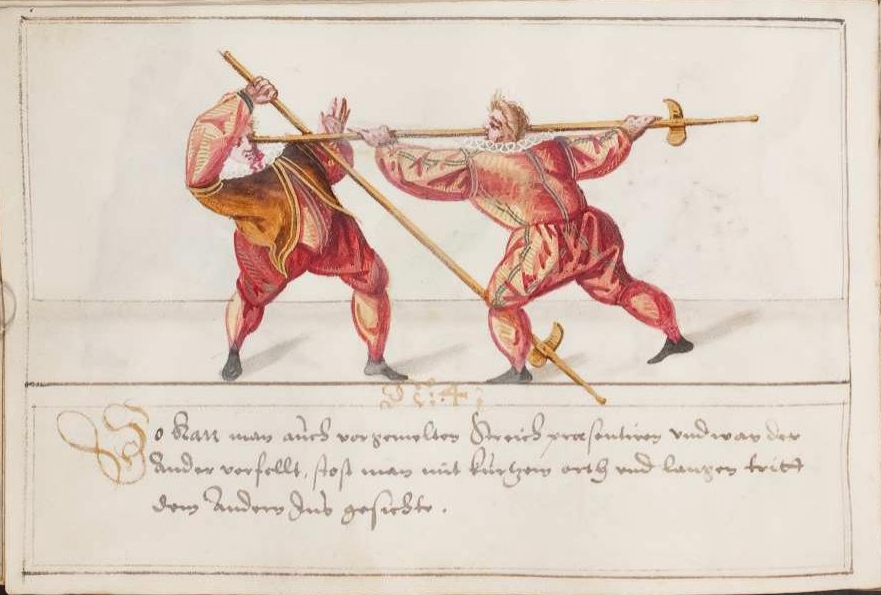 St: 4
So kan man auch vorgemelten Streich præsentiren vnd wan der
Ander verfellt, stost man mit kurtzem orth vnd langen tritt
dem Andern Ins gesichte.